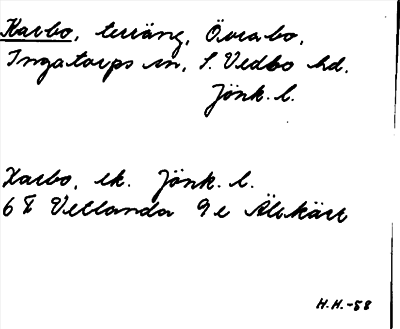 Karbo, terräng, Övrabo,
Ingatorps sn, S. Vedbo hd.
Jönk. l.
Karbo, ek. Jönk. l.
6 F Vetlanda 9 e Älekärr
H.H.-58